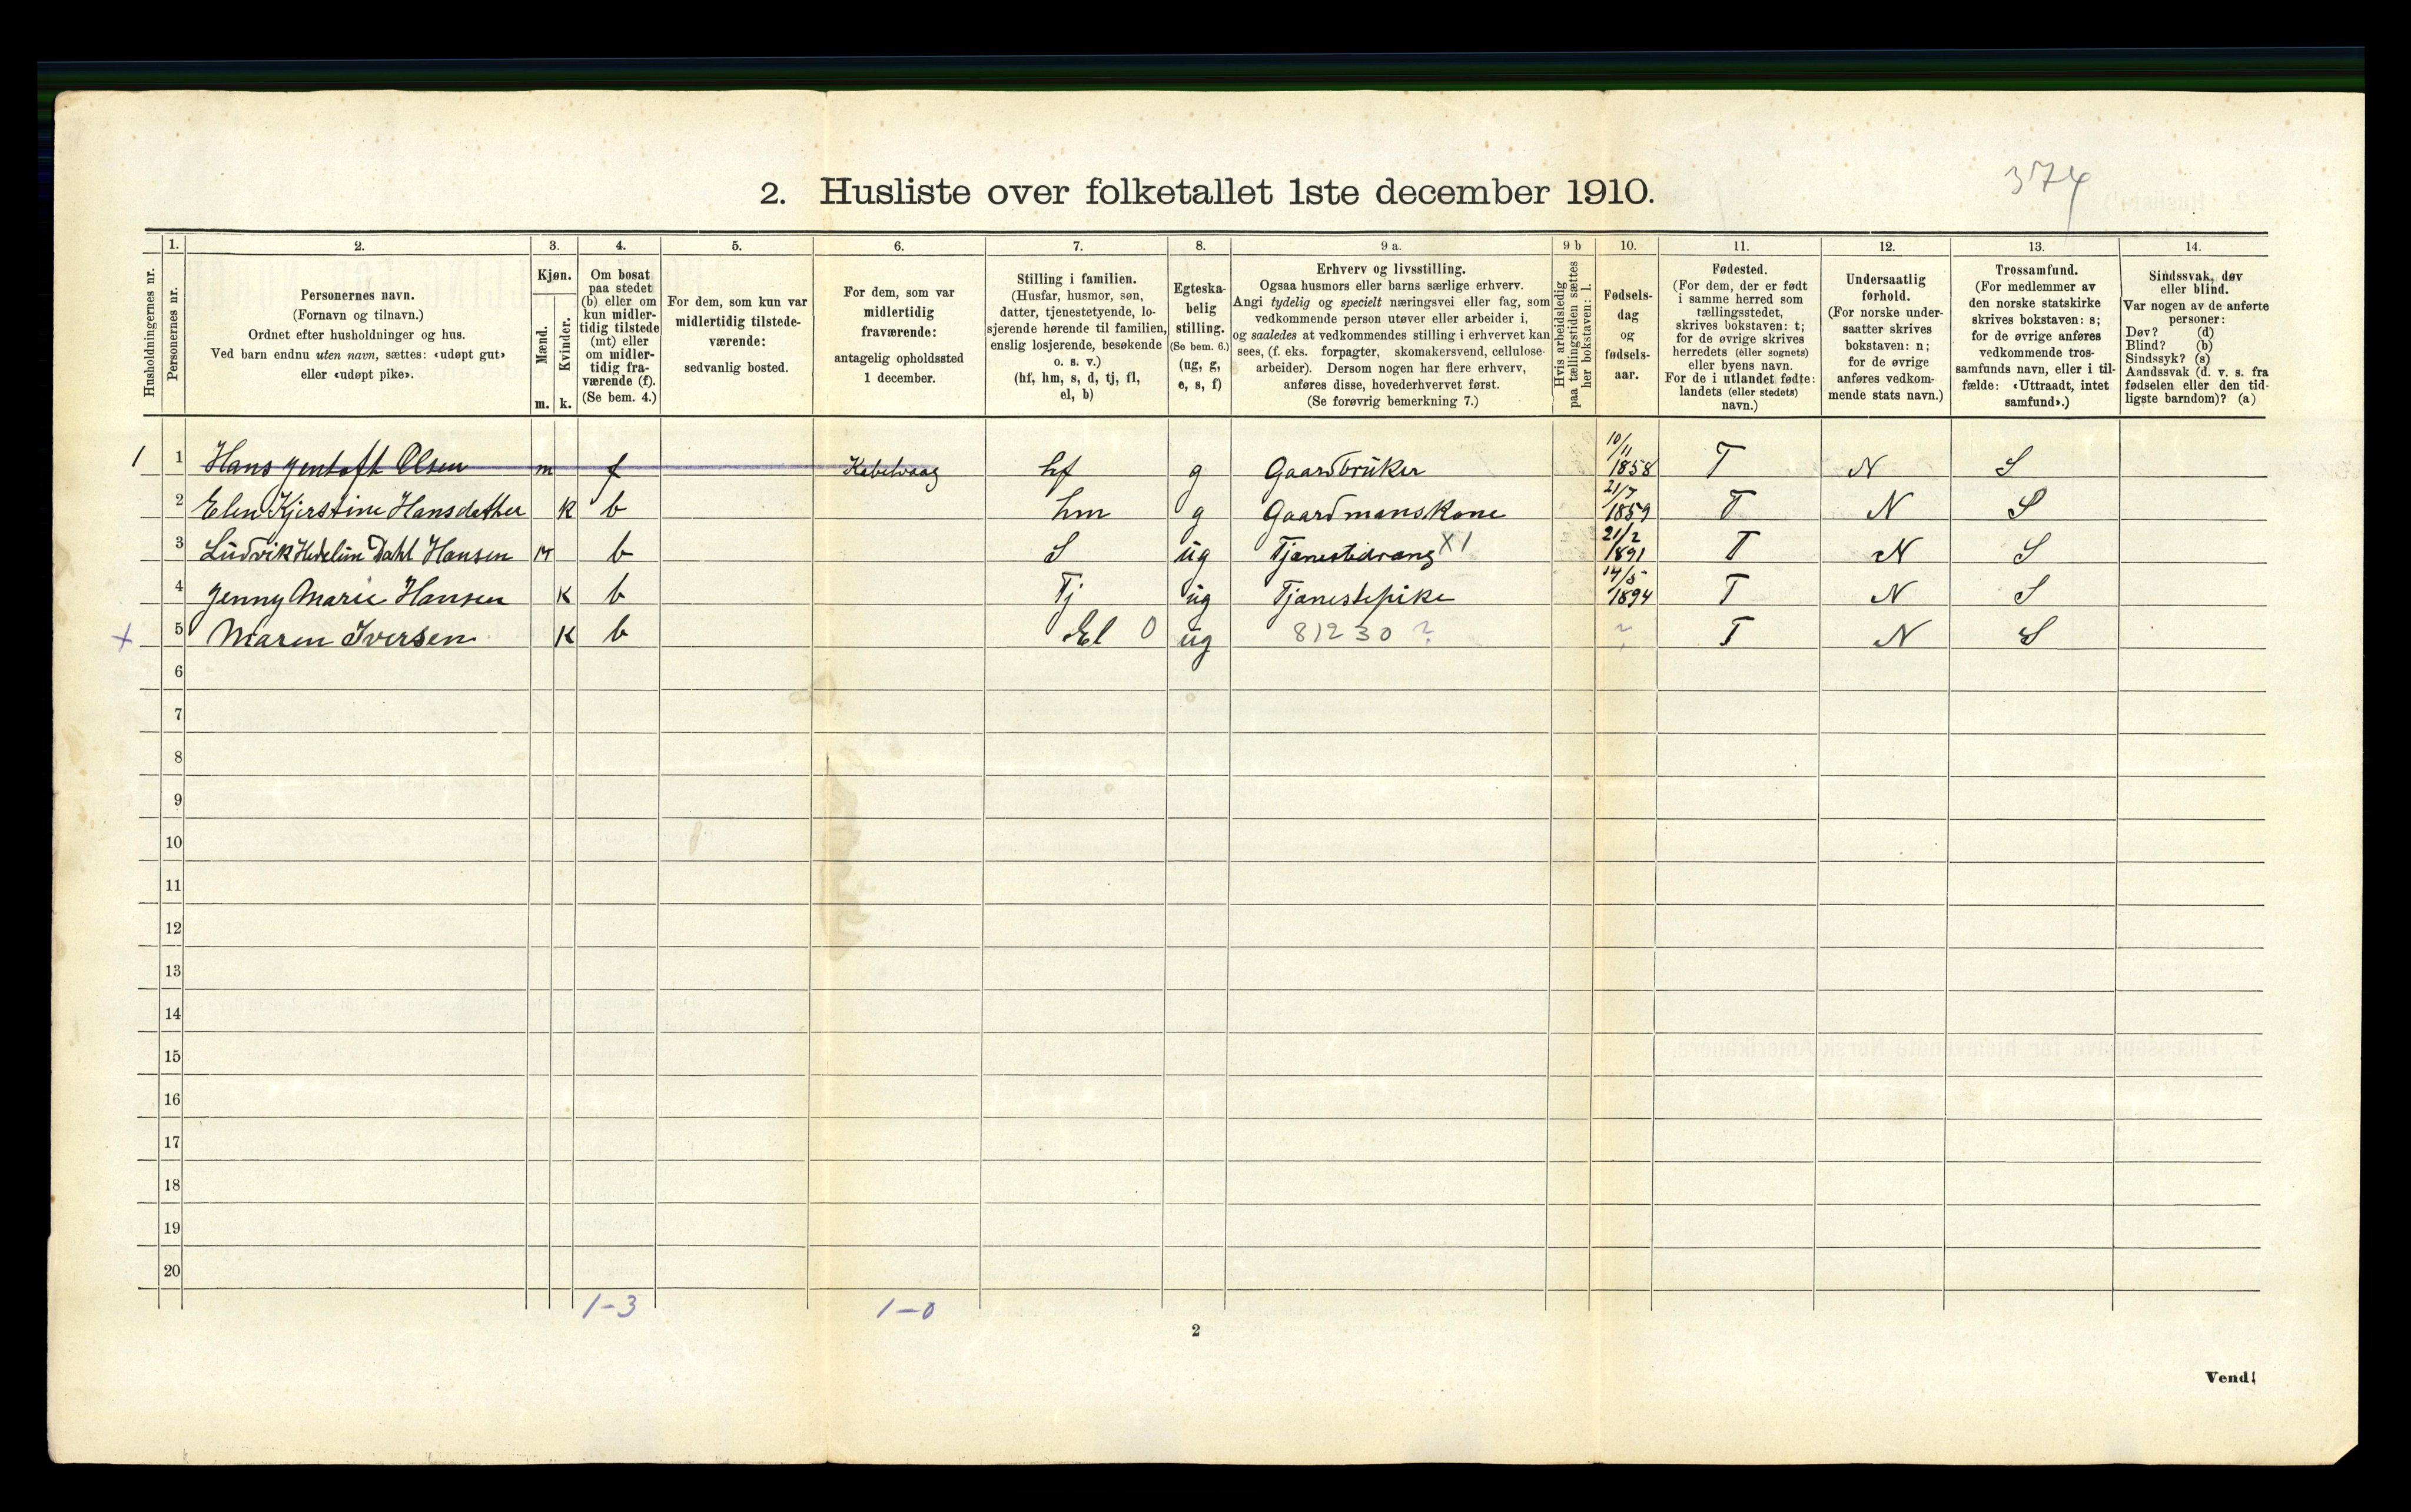 374
2. Husliste over folketallet 1ste december 1910.
Husholdningernes nr.
1.
Personernes nr.
2.
Personernes navn.
(Fornavn og tilnavn.)
Ordnet efter husholdninger og hus.
Ved barn endnu uten navn, sættes: «udøpt gut»
eller «udøpt pike».
3.
Kjøn.
Mænd.
Kvinder.
m. k.
4.
Om bosat
paa stedet
(b) eller om
kun midler-
tidig tilstede
(mt) eller
om midler-
tidig fra-
værende (f).
(Se bem. 4.)
5.
For dem, som kun var
midlertidig tilstede-
værende:
sedvanlig bosted.
6.
For dem, som var
midlertidig
fraværende:
antagelig opholdssted
1 december.
7.
Stilling i familien.
(Husfar, husmor, søn,
datter, tjenestetyende, lo-
sjerende hørende til familien,
enslig losjerende, besøkende
o. s. v.)
(hf, hm, s, d, tj, fl,
el, b)
8.
Egteska-
belig
stilling.
(Se bem. 6.)
(ug, g,
e, s, f)
9 a.
Erhverv og livsstilling.
Ogsaa husmors eller barns særlige erhverv.
Angi tydelig og specielt næringsvei eller fag, som
vedkommende person utøver eller arbeider i,
og saaledes at vedkommendes stilling i erhvervet kan
sees, (f. eks. forpagter, skomakersvend, cellulose-
arbeider). Dersom nogen har flere erhverv,
anføres disse, hovederhvervet først.
(Se forøvrig bemerkning 7.)
9 b
Hvis arbeidsledig
paa tællingstiden sættes
her bokstaven: l.
10.
Fødsels-
dag
og
fødsels-
aar.
11.
Fødested.
(For dem, der er født
i samme herred som
tællingsstedet,
skrives bokstaven: t;
for de øvrige skrives
herredets (eller sognets)
eller byens navn.
For de i utlandet fødte:
landets (eller stedets)
navn.)
12.
Undersaatlig
forhold.
(For norske under-
saatter skrives
bokstaven: n;
for de øvrige
anføres vedkom-
mende stats navn.)
13.
Trossamfund.
(For medlemmer av
den norske statskirke
skrives bokstaven: s;
for de øvrige anføres
vedkommende tros-
samfunds navn, eller i til-
fælde: «Uttraadt, intet
samfund».)
14.
Sindssvak, døv
eller blind.
Var nogen av de anførte
personer:
Døv? (d)
Blind? (b)
Sindssyk? (s)
Aandssvak (d. v. s. fra
fødselen eller den tid-
ligste barndom)? (a)
1 1 Hans Jentoft Olsen m f Kabelvaag hf g Gaardbruker 10/11 1858 T N S
2 Elen Kjerstine Hansdather K b hm g Gaardmanskone 21/7 1859 T N S
3 Ludvik Hedelun Dahl Hansen M b S ug X1 21/2 1891 T N S
4 Jenny Marie Hansen K b Tj ug Tjenestepike 14/5 1894 T N S
x 5 Maren Iversen K b El 0 ug 81230 ? ? T N S
6
7
8
9
10
11
12
13
14
15
16
17
18
19
20
1-3 1-0
2
Vend!